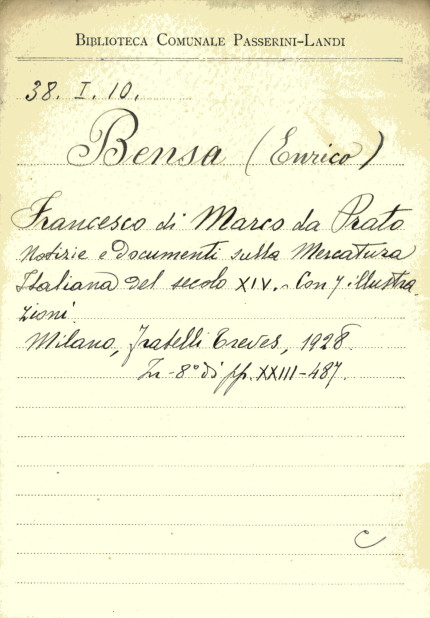 BIBLIOTECA COMUNALE PASSERINI-LANDI
38. I. 10.
Bensa (Enrico)
Francesco di Marco da Prato
Notizie e Documenti sulla Mercatura
Italiana del secolo XIV. - Con 7 illustra
zioni.
Milano, Fratelli Treves, 1928.
In-8° di pp. XXIII-487.
C